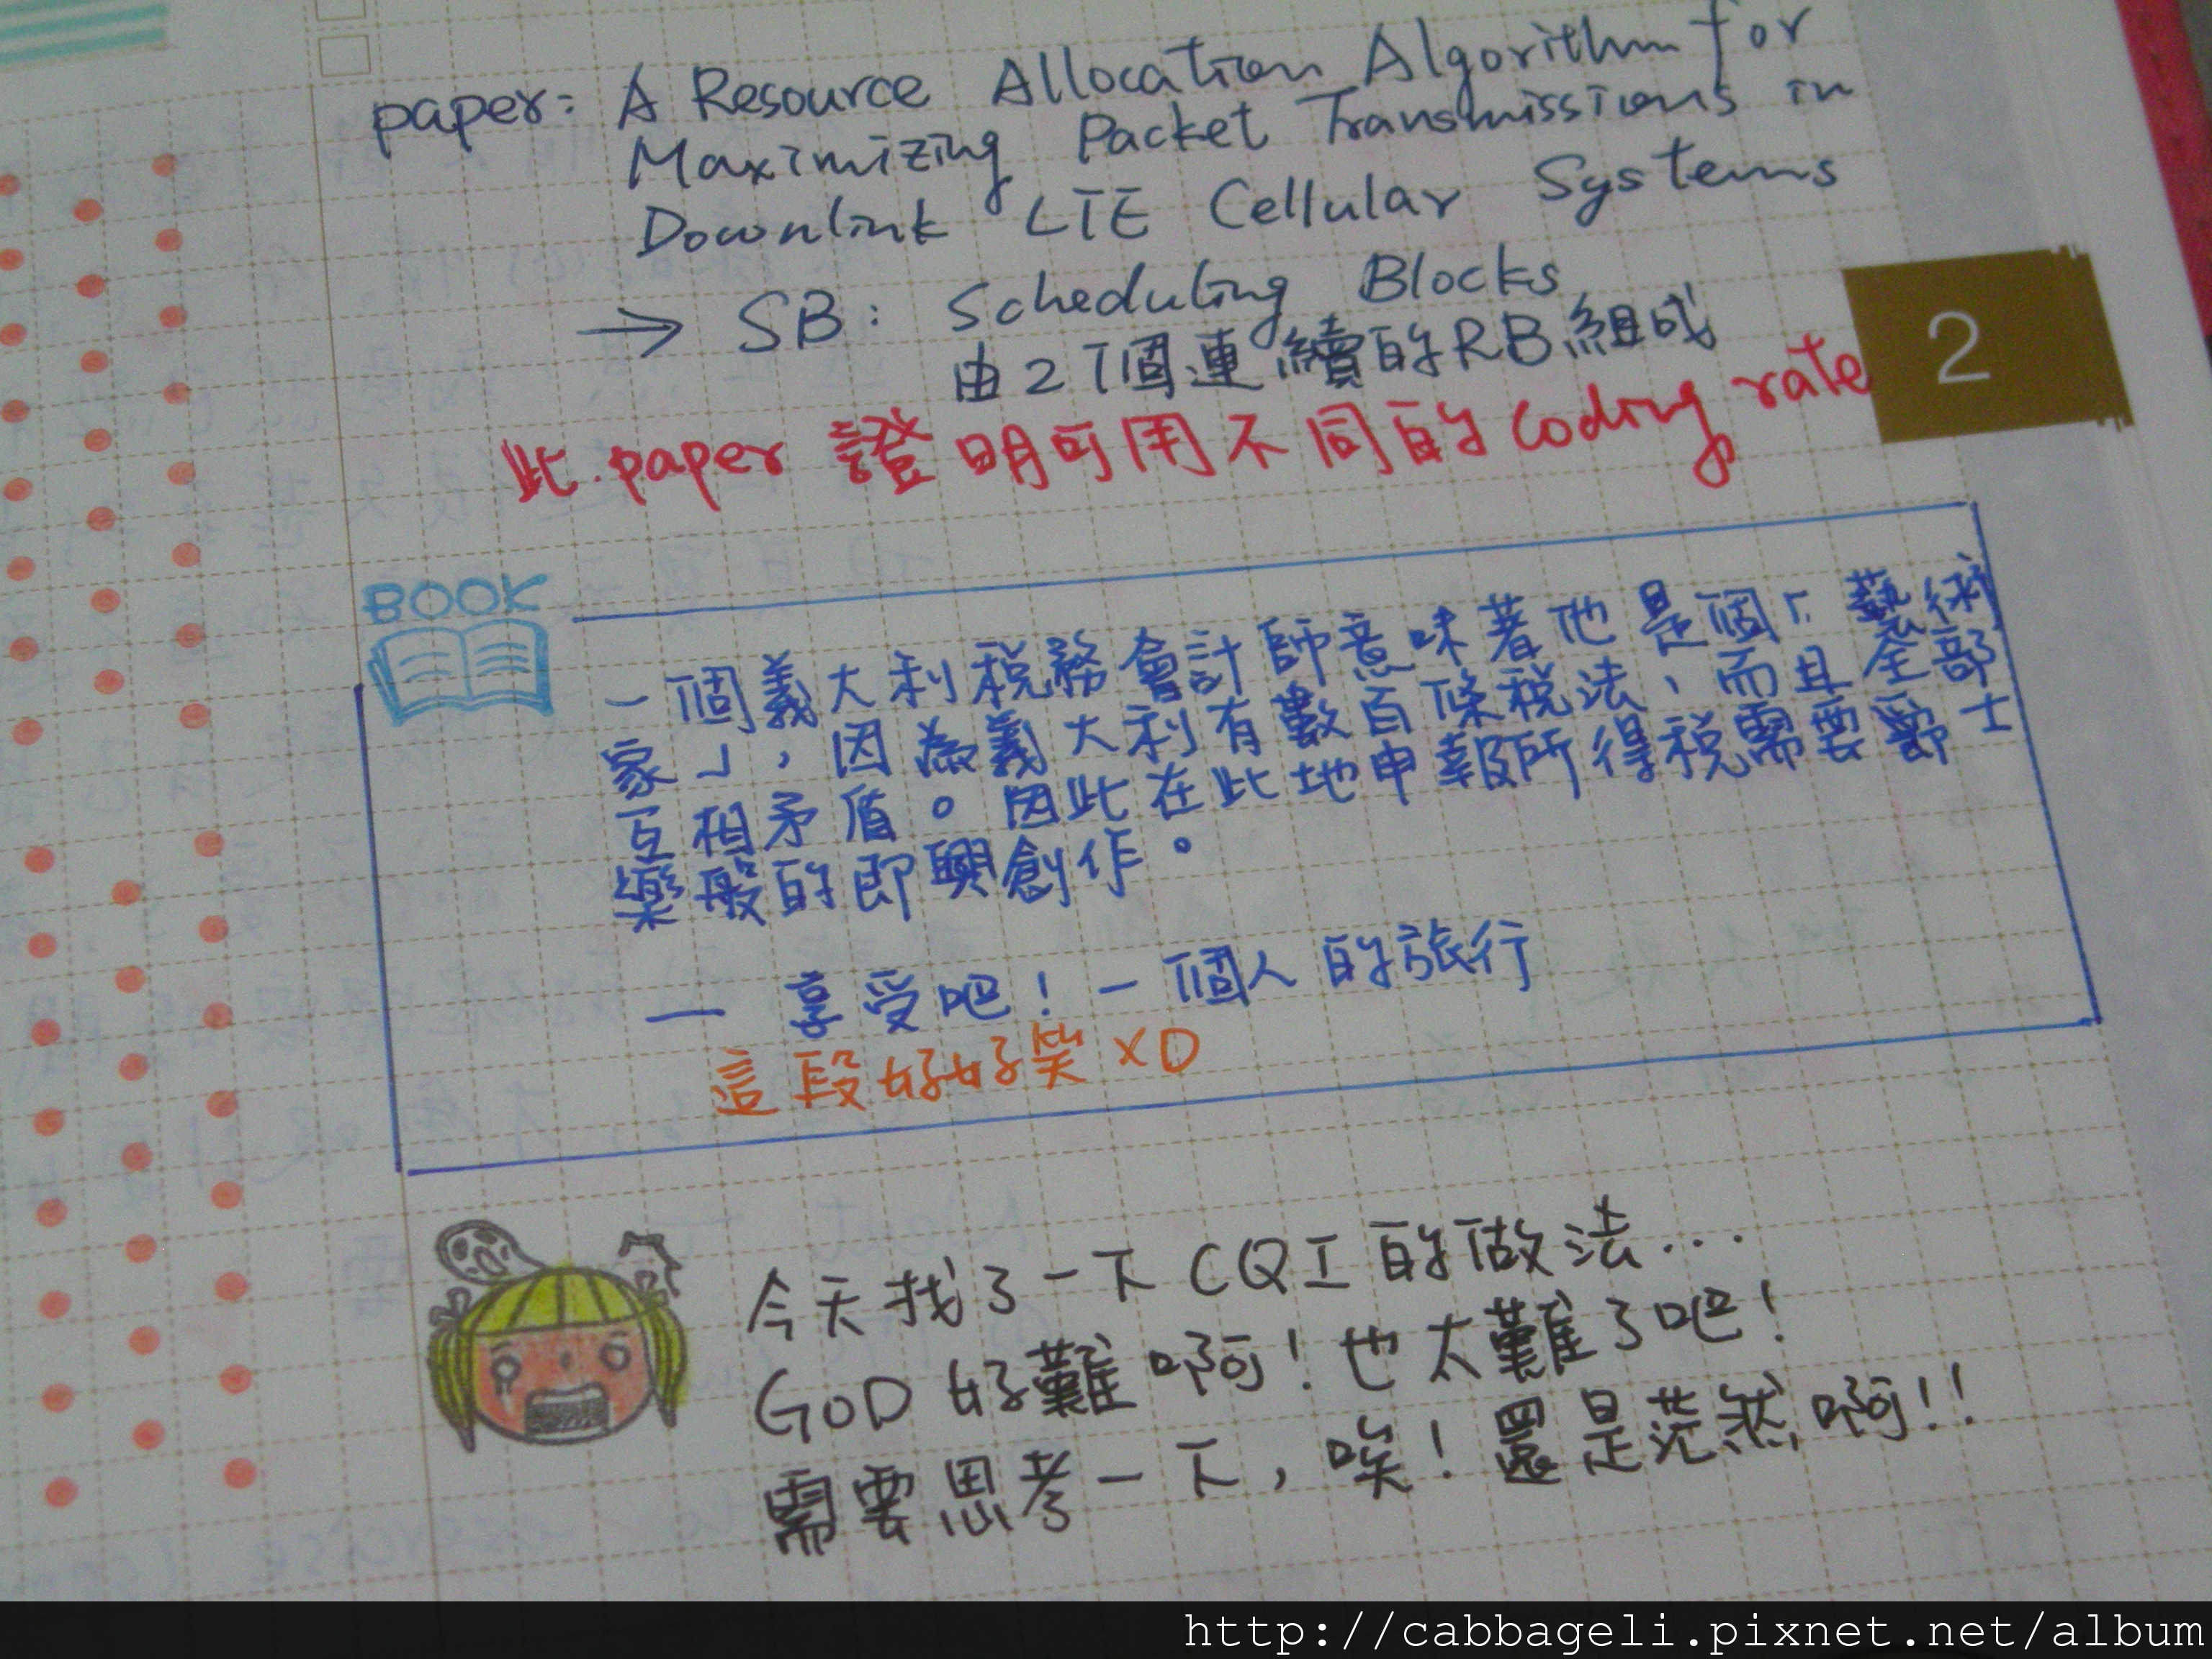 paper: A Resource Allocation Algorithm for
Maximizing Packet Transmissions in
Downlink LTE Cellular Systems
→ SB: Scheduling Blocks
由2個連續的RB組成
此.paper 證明可用不同的coding rate
2
BOOK
一個義大利稅務會計師意味著他是個「藝術
家」,因為義大利有數百條稅法,而且全部
互相矛盾。因此在此地申報所得稅需要爵士
樂般的即興創作。
— 享受吧!一個人的旅行
這段好好笑XD
今天找了一下CQI的做法...
GOD 好難啊!也太難了吧!
需要思考一下,唉!還是茫然啊!!
http://cabbageli.pixnet.net/album